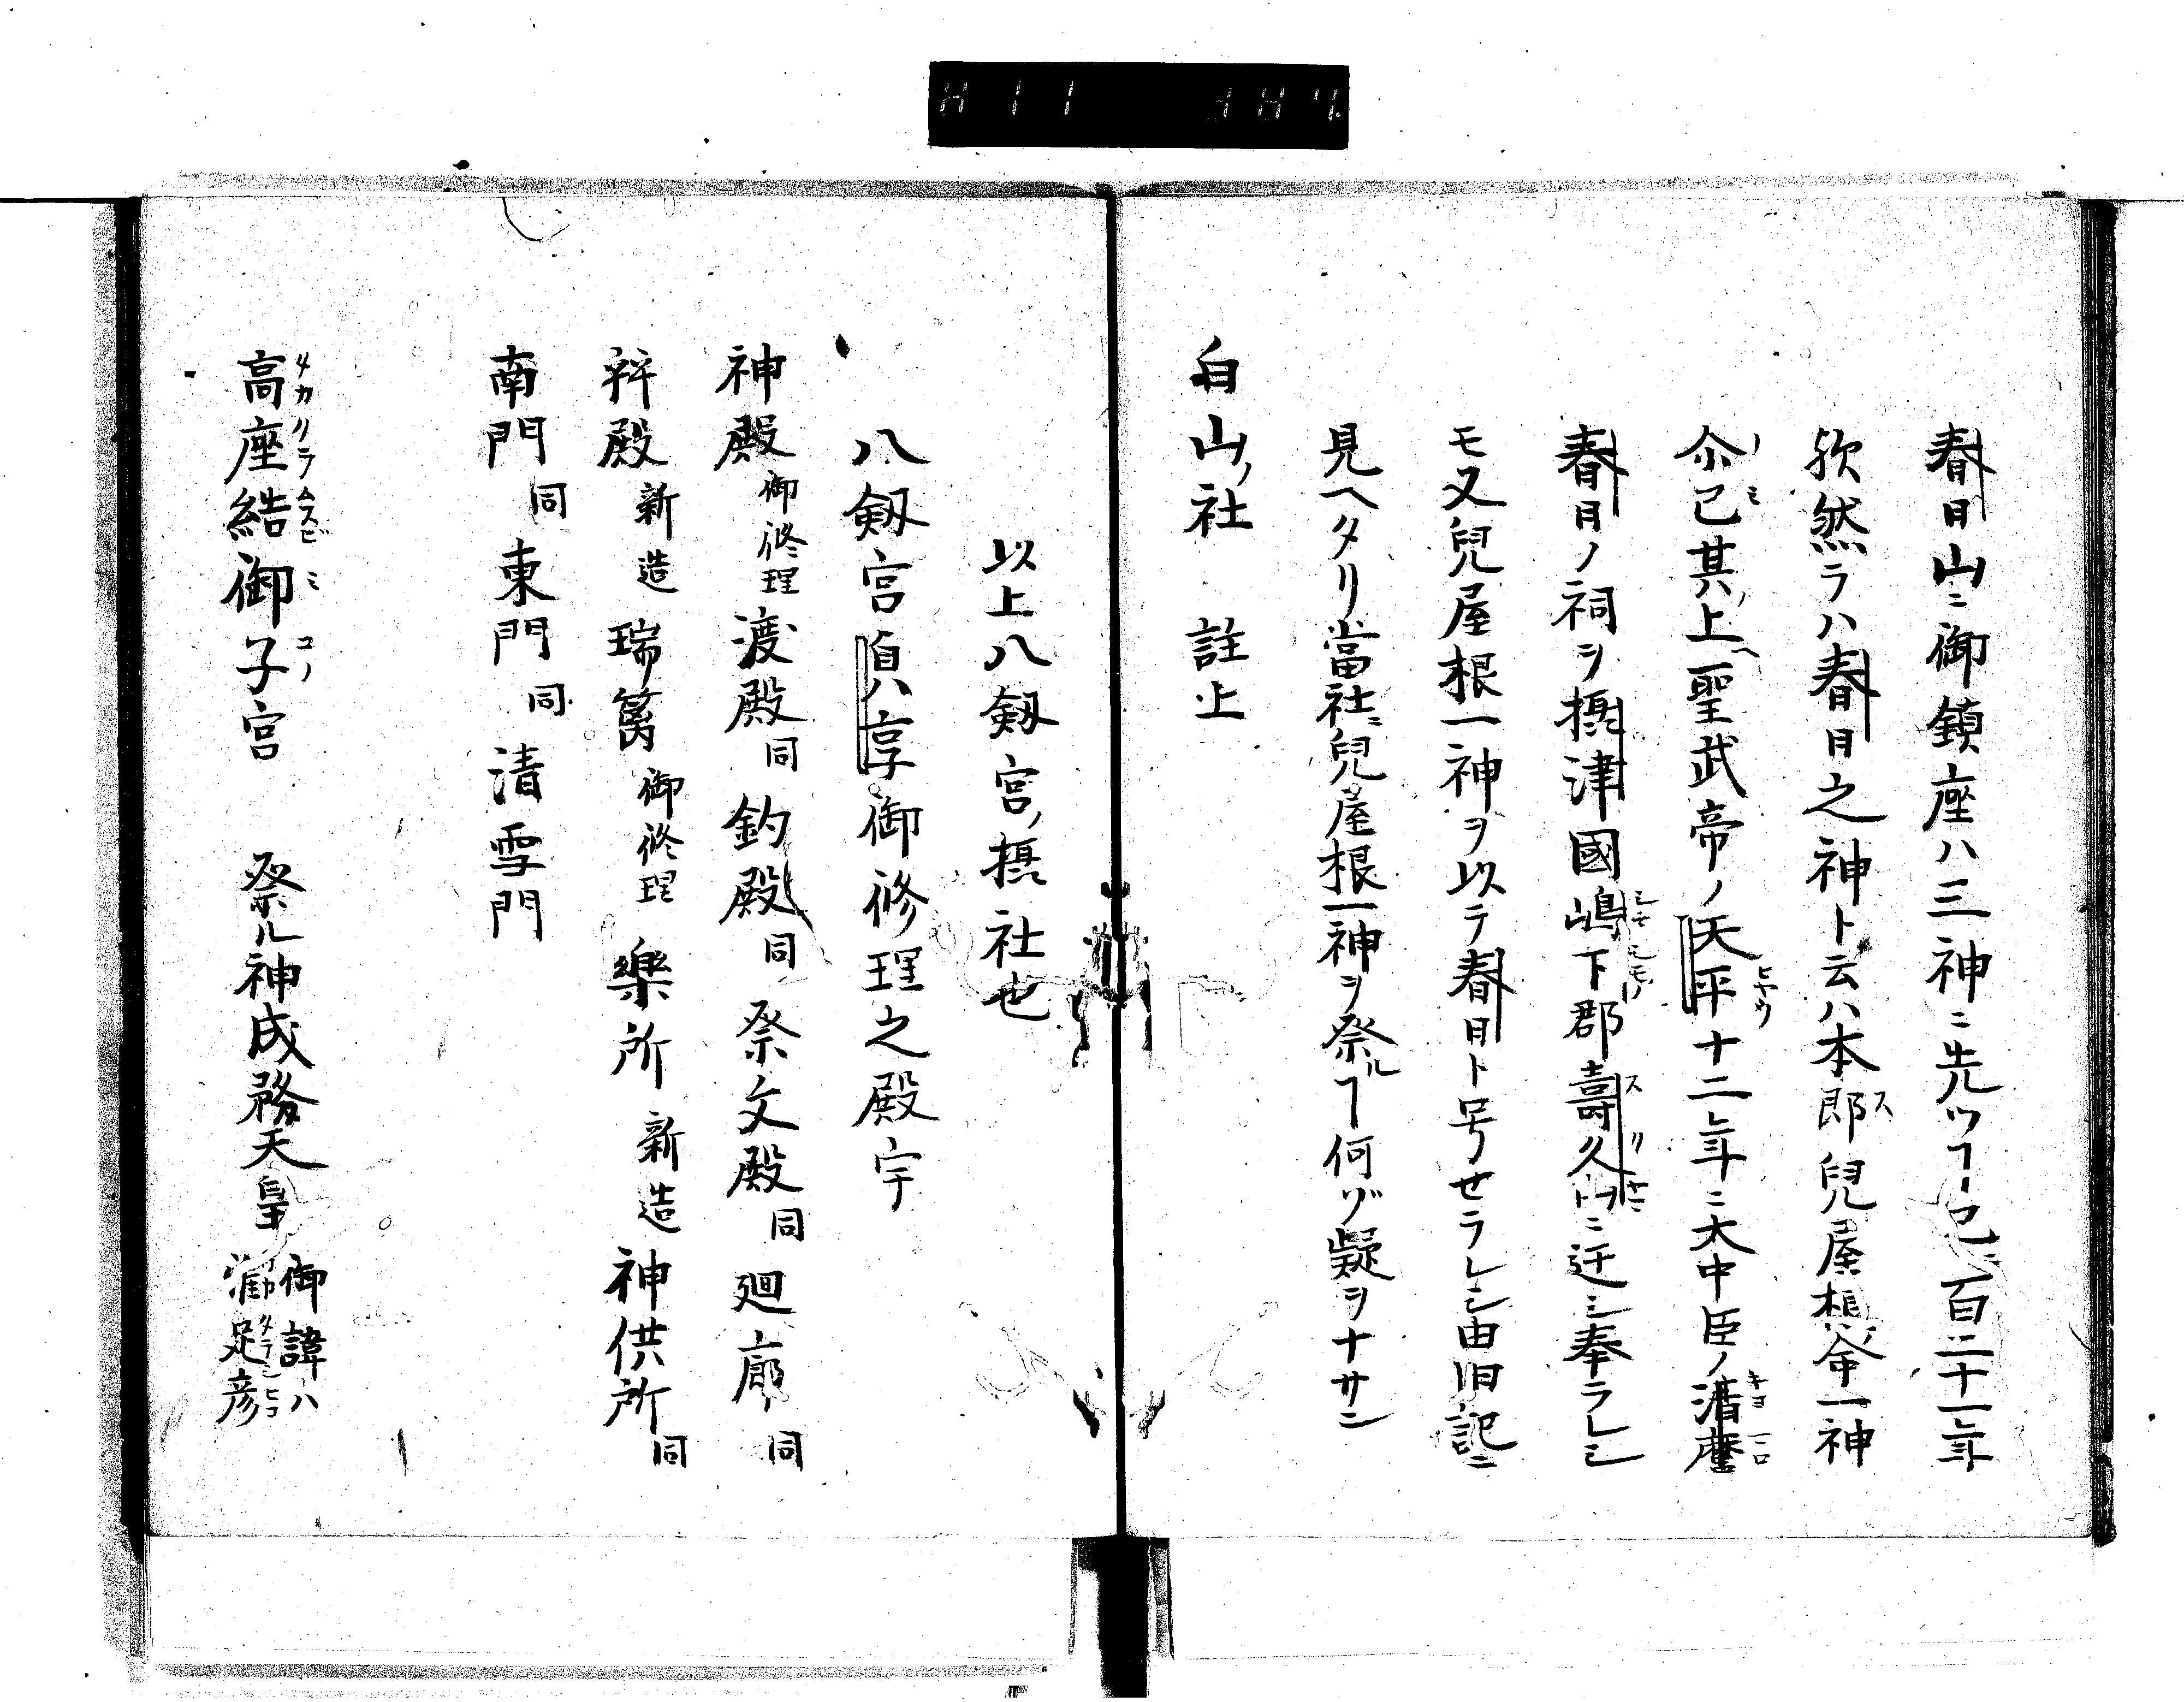 春日山ニ御鎮座ハ三神ニ先ツヿ已ニ百二十一年
歟然ラハ春日之神ト云ハ本郎兒屋根命一神
而已其上聖武帝ノ天平十二年ニ大中臣ノ清麿
春日ノ祠ヲ摂津國嶋下郡壽久ニ迁シ奉ラレシ
モ又兒屋根一神ヲ以テ春日ト号セラレシ由旧記ニ
見ヘタリ當社ニ兒屋根一神ヲ祭ルヿ何ゾ疑ヲナサン
白山ノ社 註上
以上八劔宮ノ摂社也
八劔宮貞享御修理之殿宇
神殿御修理 渡殿同 釣殿同 祭文殿同 廻廊同
拜殿新造 瑞籬御修理 樂所新造 神供所同
南門同 東門同 清雪門
高座結御子宮 祭ル神成務天皇 御諱ハ
足彦